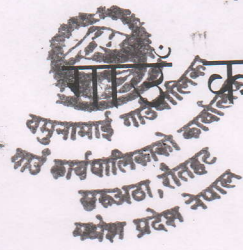 गाउँ क
यमुनामाई गाउँपालिका
गाउँ कार्यपालिकाको कार्यालय
सरुअठा, रौतहट
मधेश प्रदेश नेपाल